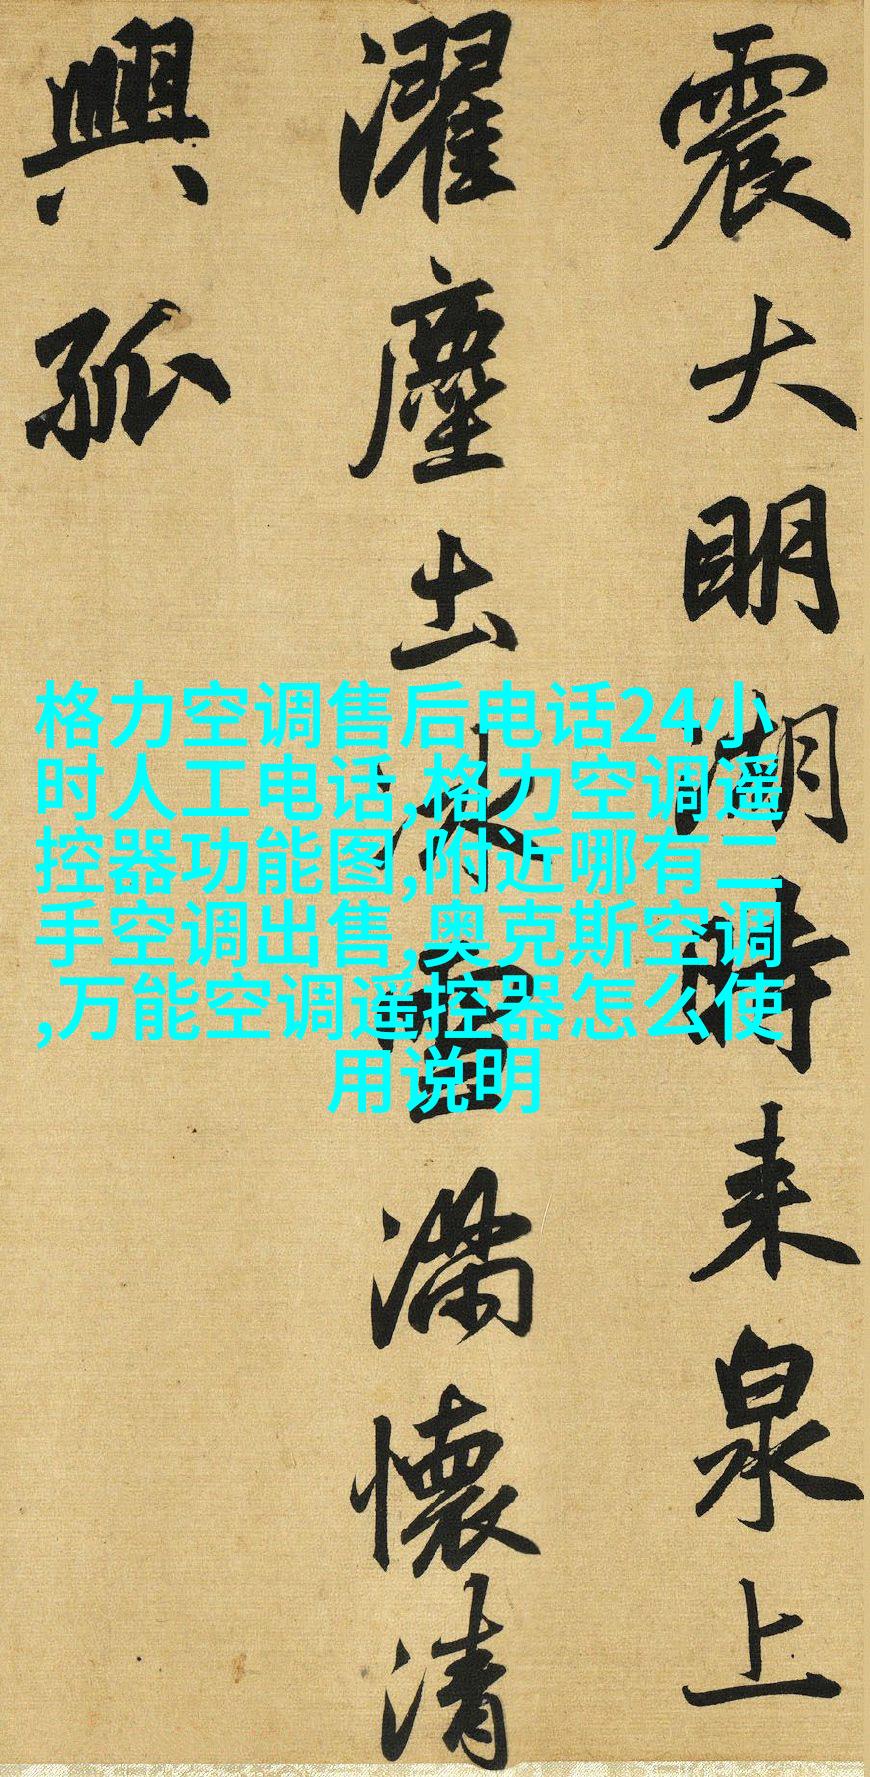 震大明湖時来泉上
濯塵出冰雪滿懷清
興孤
格力空调售后电话24小
时人工电话,格力空调遥
控器功能图,附近哪有二
手空调出售,奥克斯空调
,万能空调遥控器怎么使
用说明